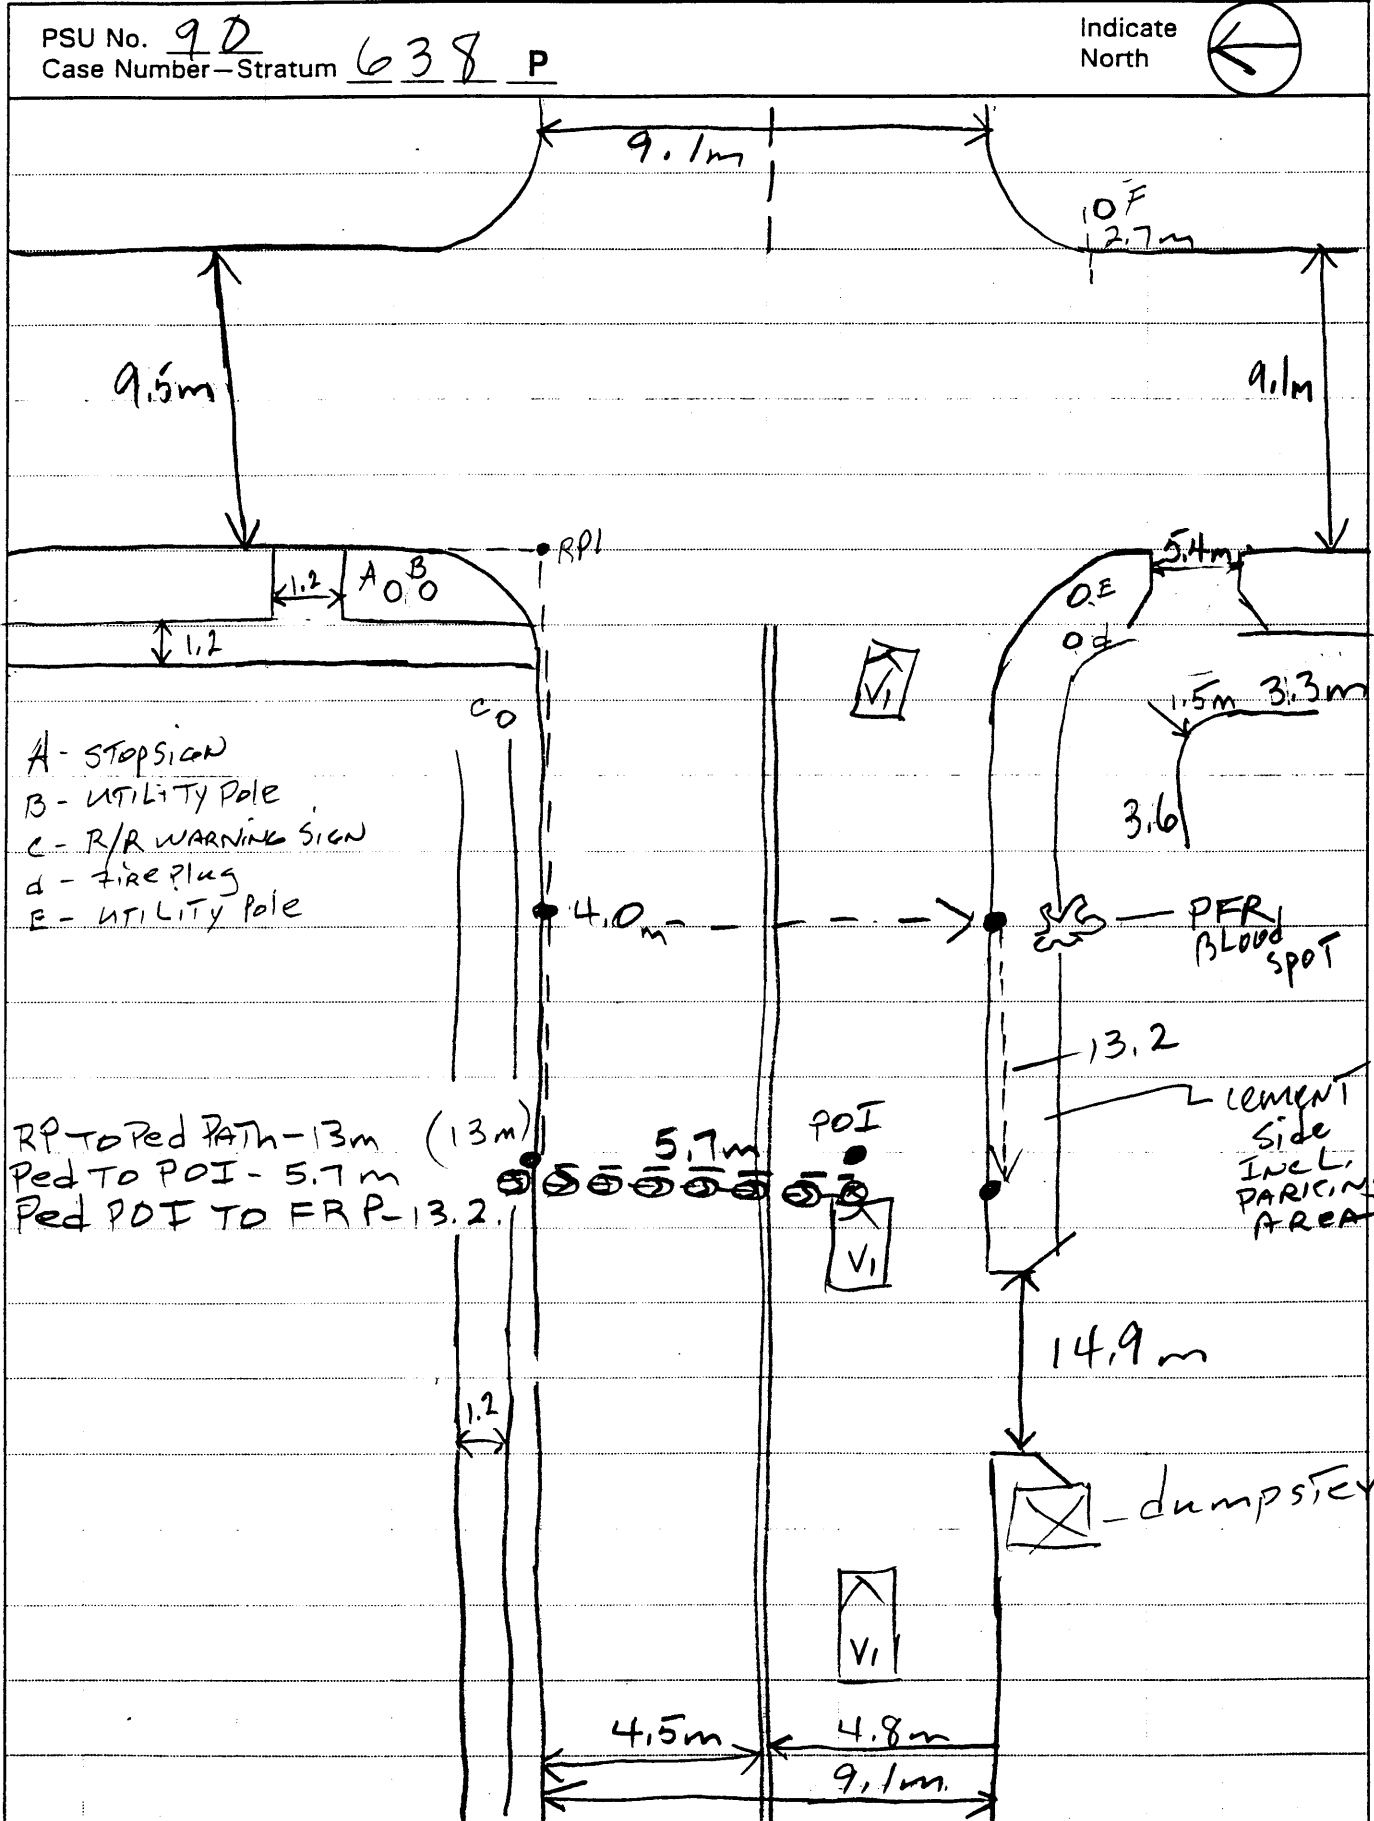 PSU No. 90
Case Number—Stratum 638 P
Indicate
North
9.1m
F
2.7m
9.5m
9.1m
RP1
5.4m
A
B
1.2
E
1.2
d
V1
1.5m 3.3m
C
A - STOPSIGN
B - UTILITY Pole
C - R/R WARNING SIGN
d - FirePlug
E - UTILITY Pole
3.6
4.0m
PFR
BLOOD
SPOT
13.2
CEMENT
Side
INCL.
PARKING
AREA
RP TO Ped PATH - 13m (13m)
5.7m
POI
Ped TO POI - 5.7m
Ped POI TO FRP - 13.2.
V1
14.9m
1.2
dumpster
V1
4.5m
4.8m
9.1m